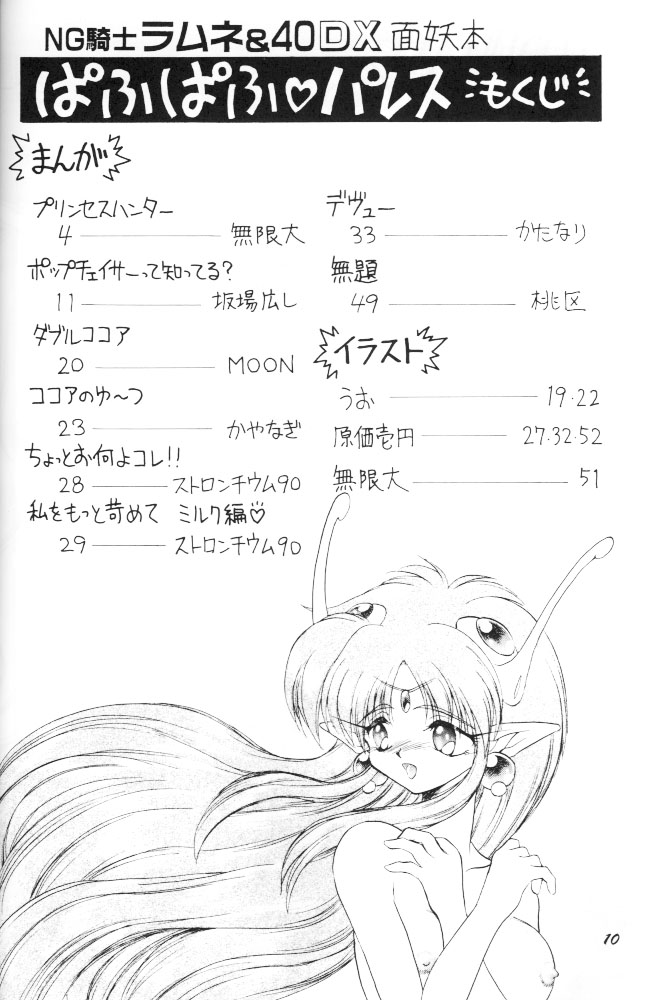 NG騎士ラムネ&40DX 面妖本
ぱふぱふ♡パレス もくじ
まんが
プリンセスハンター
4 ――― 無限大
ポップチェイサーって知ってる?
11 ――― 坂場広し
ダブルココア
20 ――― MOON
ココアのゆ〜つ
23 ――― かやなぎ
ちょっとお何よコレ!!
28 ――― ストロンチウム90
私をもっと苛めて ミルク編♡
29 ――― ストロンチウム90
デヴュー
33 ――― かたなり
無題
49 ――― 桃区
イラスト
うお ――― 19・22
原価壱円 ――― 27・32・52
無限大 ――― 51
10